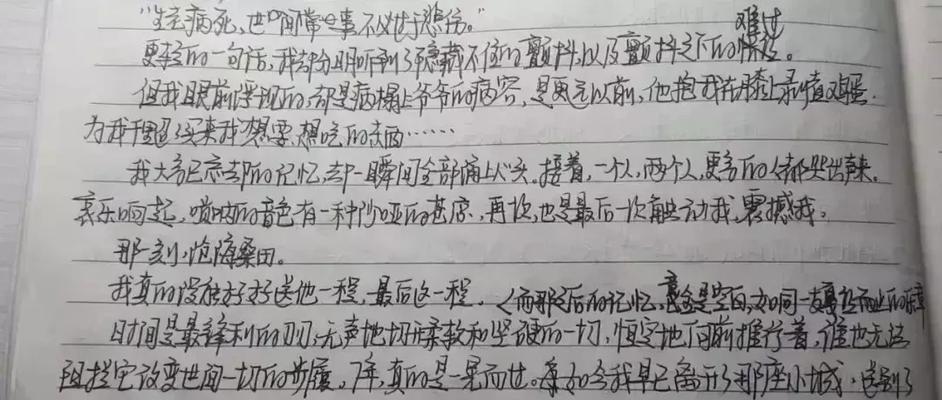 "生老病死,世间常事,不必过于悲伤。"
更轻的一句话,我却分明听到了隐藏不住的颤抖,以及颤抖之下的难过。
但我眼前浮现的,却是病榻上爷爷的病容,是更远以前,他抱我在膝上
为我买来我想要、想吃的东西……
我大多已忘却的记忆,却一瞬间全部涌上心头。接着,一个人,两个人,更多的人都哭出声来。
哀乐响起,唢呐的音色有一种沙哑的甚凉,再次,也是最后一次触动我,震撼我。
那一刻,恍隔桑田。
我真的没能好好送他一程,最后这一程。
而那之后的记忆,竟全是空白,如同一支戛然而止的
时间是最锋利的刃,无声地切开柔软和坚硬的一切,恒定地向前推行着,谁也无法
阻拦它改变世间一切的步履。7年,真的是一晃而过。如今我早已离开了那座小城,告别了